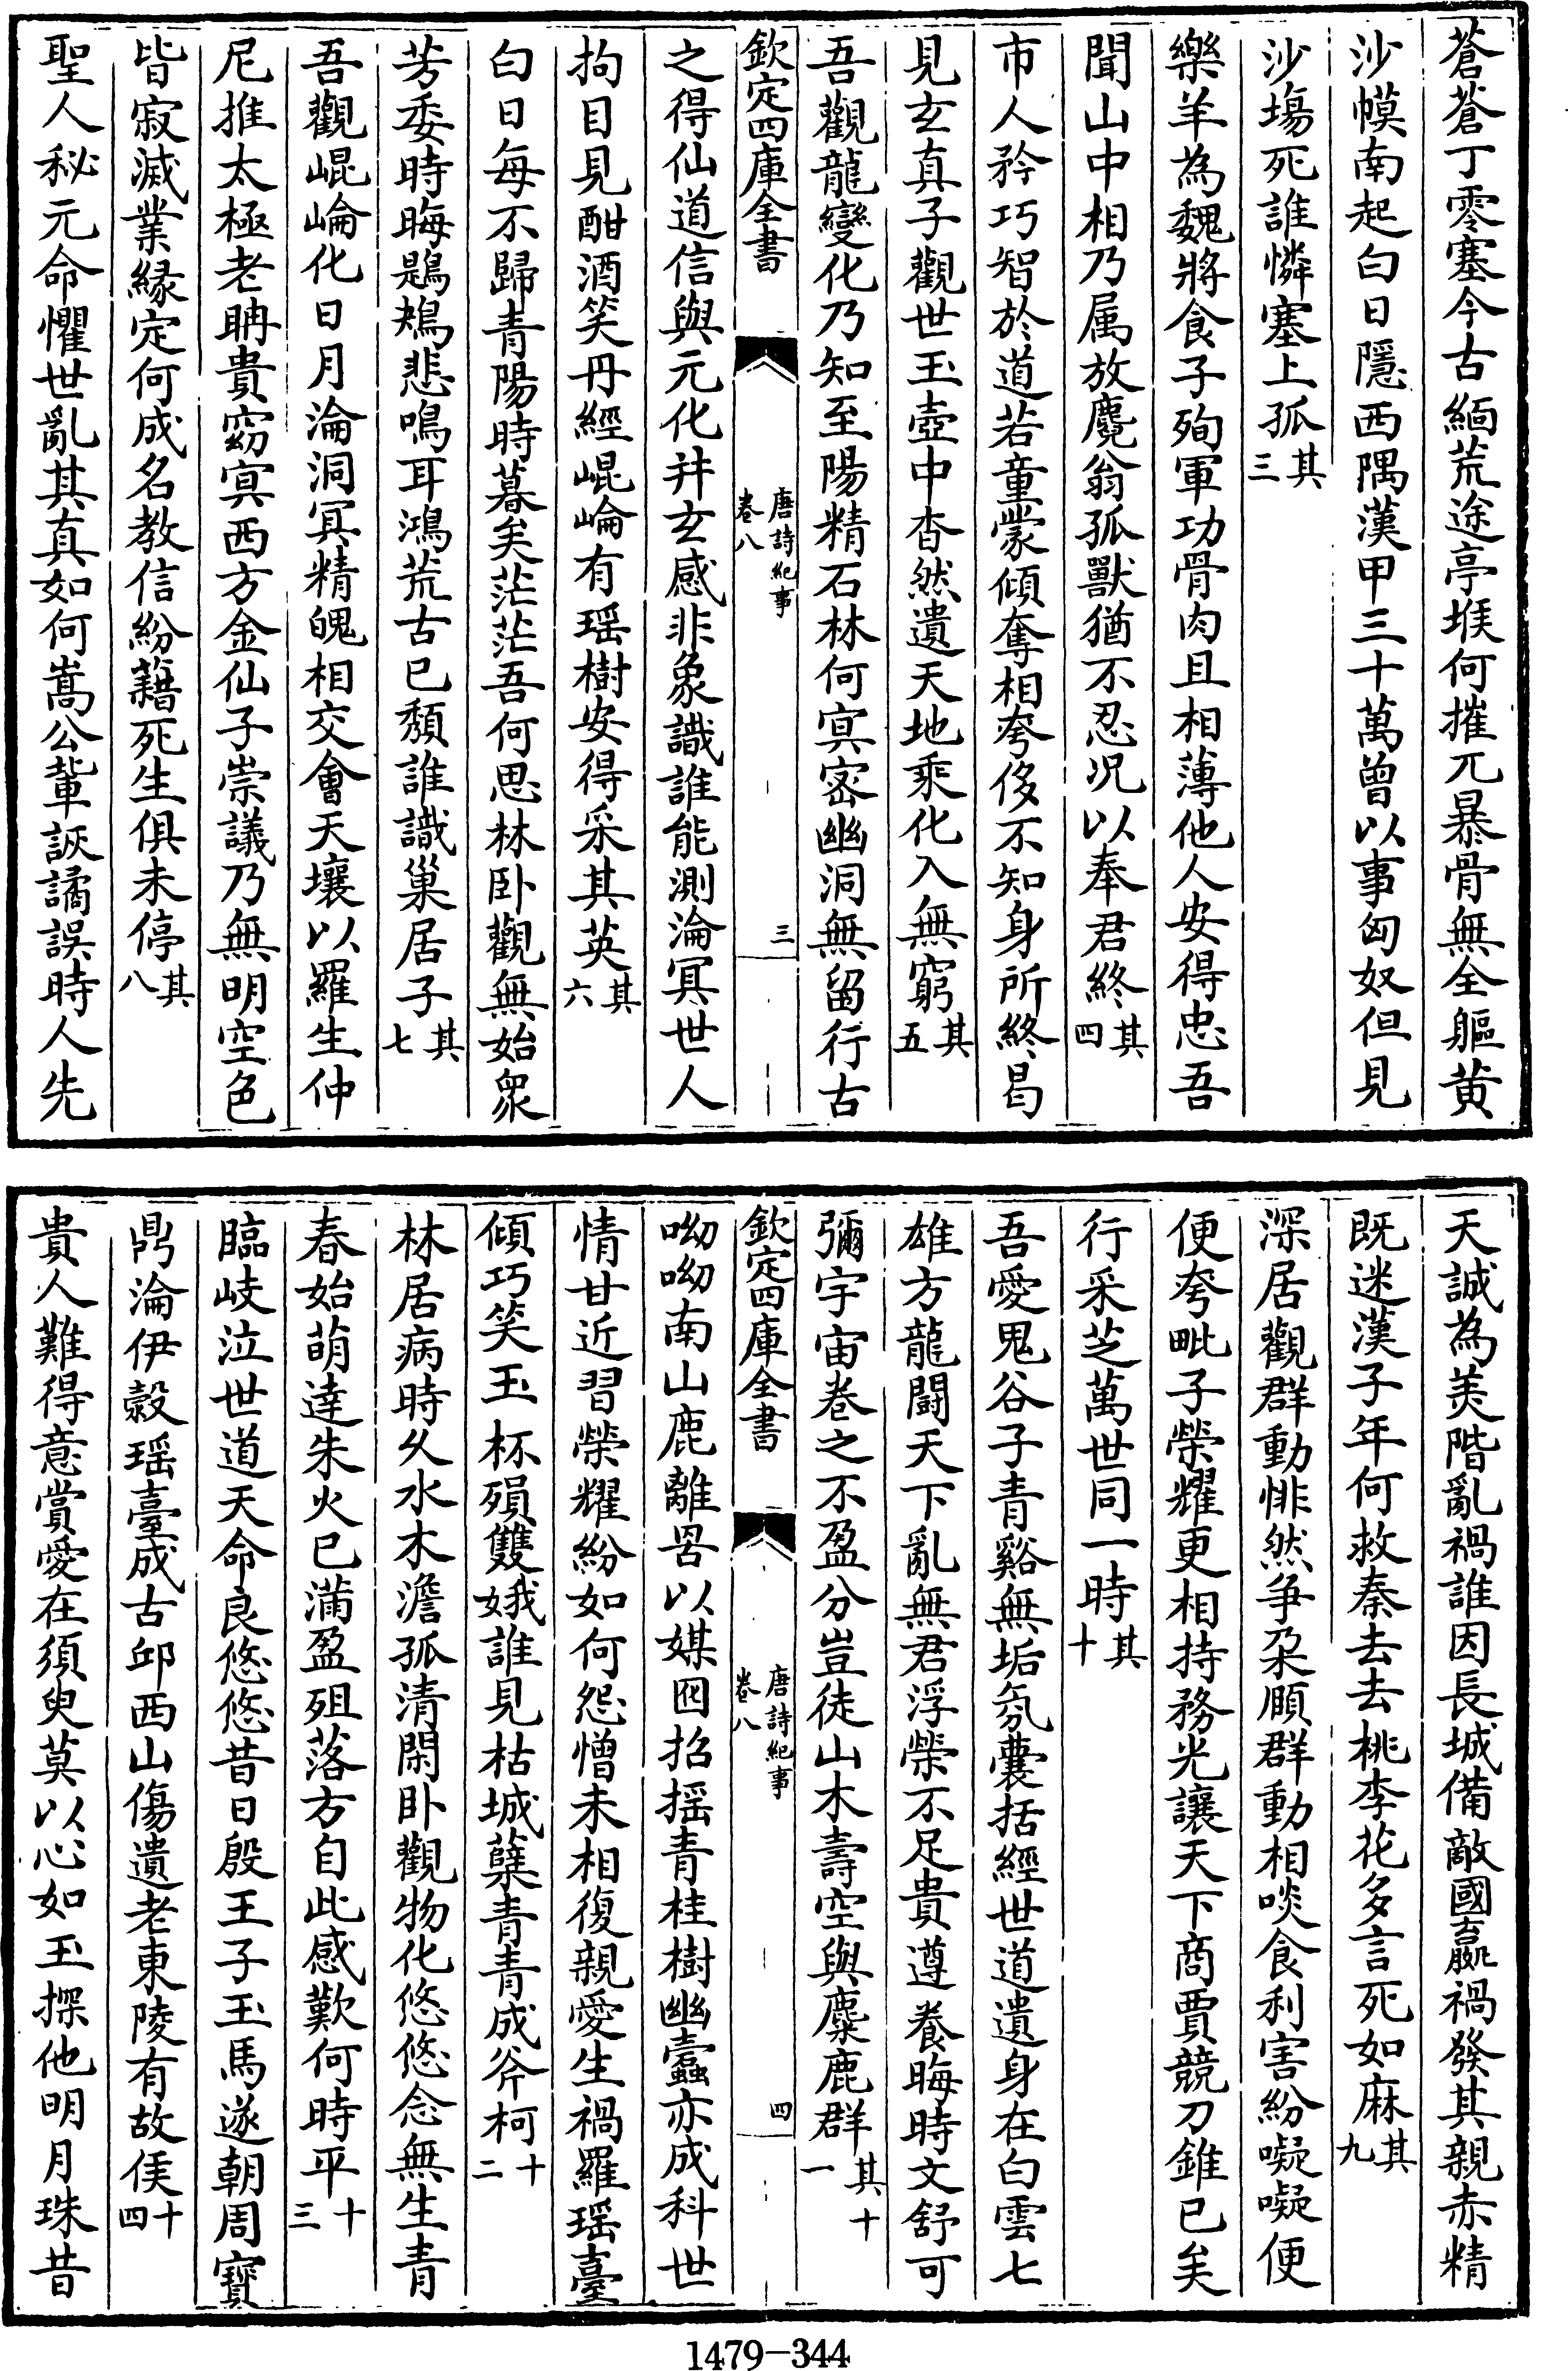 蒼蒼丁零塞今古緬荒途亭堠何摧兀暴骨無全軀黄
沙幙南起白日隱西隅漢甲三十萬曽以事匈奴但見
沙塲死誰憐塞上孤其三
樂羊為魏將食子殉軍功骨肉且相薄他人安得忠吾
聞山中相乃属放麑翁孤獸猶不忍况以奉君終其四
市人矜巧智於道若童蒙傾奪相夸侈不知身所終曷
見玄真子觀世玉壺中杳然遺天地乘化入無窮其五
吾觀龍變化乃知至陽精石林何冥密幽洞無留行古
欽定四庫全書
唐詩紀事
卷八
三
之得仙道信與元化并玄感非象識誰能測淪冥世人
拘目見酣酒笑丹經崐崘有瑶樹安得采其英其六
白日每不歸青陽時暮矣茫茫吾何思林卧觀無始衆
芳委時晦鶗鴂悲鳴耳鴻荒古已頽誰識巢居子其七
吾觀崐崘化日月淪洞冥精魄相交會天壤以羅生仲
尼推太極老聃貴窈冥西方金仙子崇議乃無明空色
皆寂滅業緣定何成名教信紛藉死生俱未停其八
聖人秘元命懼世亂其真如何嵩公輩詼譎誤時人先
天誠為美階亂禍誰因長城備敵國嬴禍發其親赤精
既迷漢子年何救秦去去桃李花多言死如麻其九
深居觀群動悱然爭朶頤群動相啖食利害紛㘈㘈便
便夸毗子榮耀更相持務光讓天下商賈競刀錐已矣
行采芝萬世同一時其十
吾愛鬼谷子青谿無垢氛囊括經世道遺身在白雲七
雄方龍鬬天下亂無君浮榮不足貴遵養晦時文舒可
彌宇宙卷之不盈分豈徒山木壽空與麋鹿群其十一
欽定四庫全書
唐詩紀事
卷八
四
呦呦南山鹿離罟以媒囮招摇青桂樹幽蠹亦成科世
情甘近習榮耀紛如何怨憎未相復親愛生禍羅瑶臺
傾巧笑玉杯殞雙娥誰見枯城蘖青青成斧柯十二
林居病時久水木澹孤清閑卧觀物化悠悠念無生青
春始萌逹朱火已滿盈殂落方自此感歎何時平十三
臨岐泣世道天命良悠悠昔日殷王子玉馬遂朝周寶
鼎淪伊榖瑶臺成古邱西山傷遺老東陵有故侯十四
貴人難得意賞愛在須臾莫以心如玉探他明月珠昔
1479-344